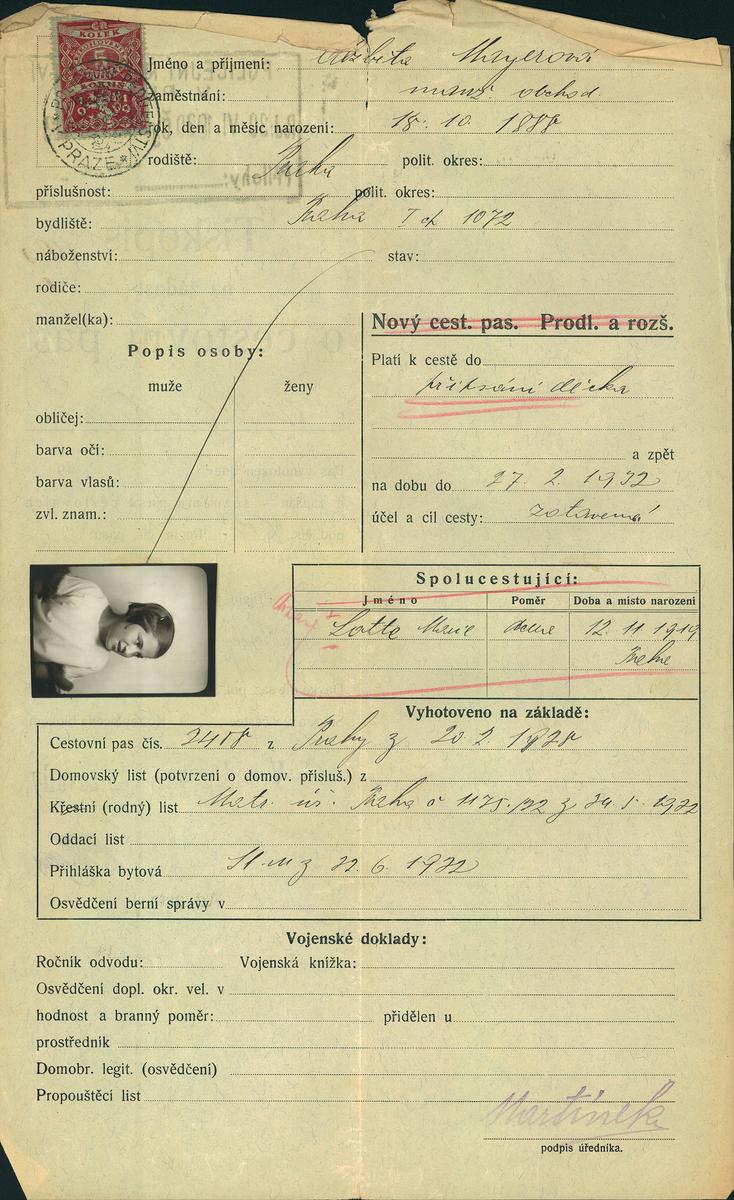 ČR
KOLEK
5
KORUN
PRAZE
Jméno a příjmení: Alžběta Mayerová
zaměstnání: manž obchod.
rok, den a měsíc narození: 18. 10. 1888
rodiště: Praha polit. okres:
příslušnost: polit. okres:
bydliště: Praha I čp 1072
náboženství: stav:
rodiče:
manžel(ka):
Nový cest. pas. Prodl. a rozš.
Popis osoby:
muže ženy
obličej:
barva očí:
barva vlasů:
zvl. znam.:
Platí k cestě do
připsání dítka
a zpět
na dobu do 27. 2. 1932
účel a cíl cesty: zotavená
Spolucestující:
Jméno Poměr Doba a místo narození
Lotte Marie dcera 12. 11. 1919
Praha
Vyhotoveno na základě:
Cestovní pas čís. 2408 z Prahy z 20 2 1928
Domovský list (potvrzení o domov. přísluš.) z
Křestní (rodný) list Matr. úř. Praha č 1175/22 z 24. 5. 1922
Oddací list
Přihláška bytová 22. 6. 1932
Osvědčení berní správy v
Vojenské doklady:
Ročník odvodu: Vojenská knížka:
Osvědčení dopl. okr. vel. v
hodnost a branný poměr: přidělen u
prostředník
Domobr. legit. (osvědčení)
Propouštěcí list
Martínek
podpis úředníka.